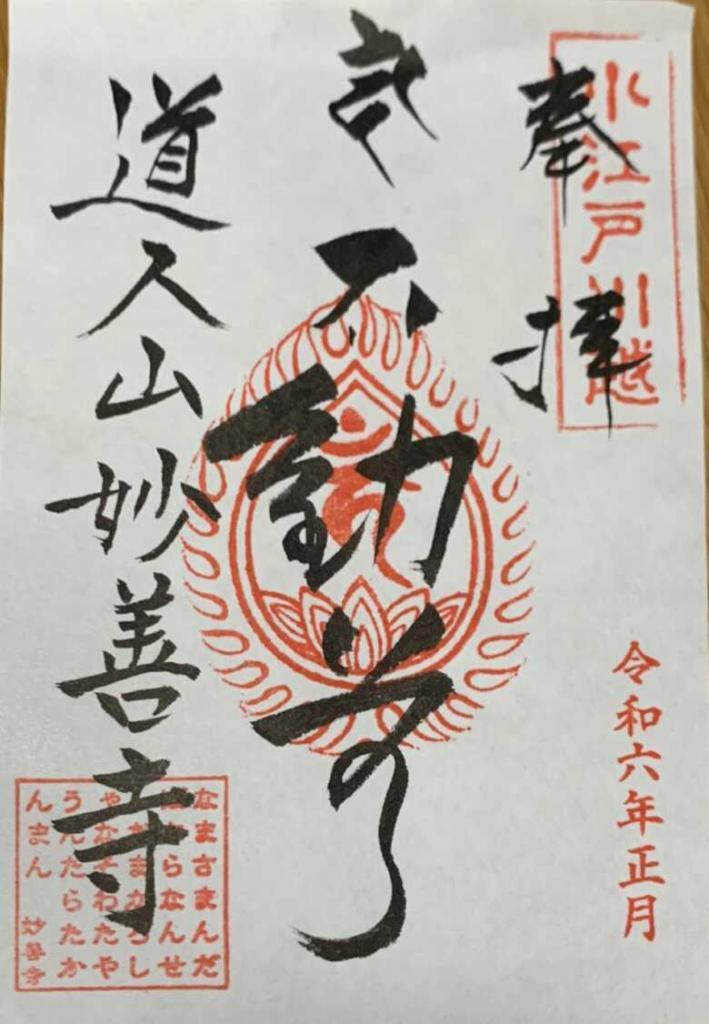 小江戸川越
奉拝
令和六年正月
不動尊
道人山妙善寺
なまさまんだ
さらなんせ
まかろし
やなそわたや
うんたらたか
んまん 妙善寺